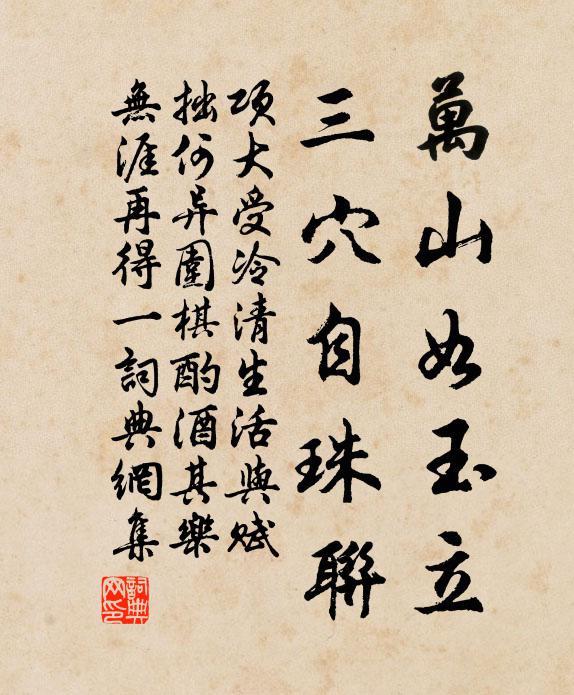 萬山如玉立
三穴自珠聯
项大受冷清生活與赋
拙何异圍棋酌酒其樂
無涯再得一詞典網集
詞典网印